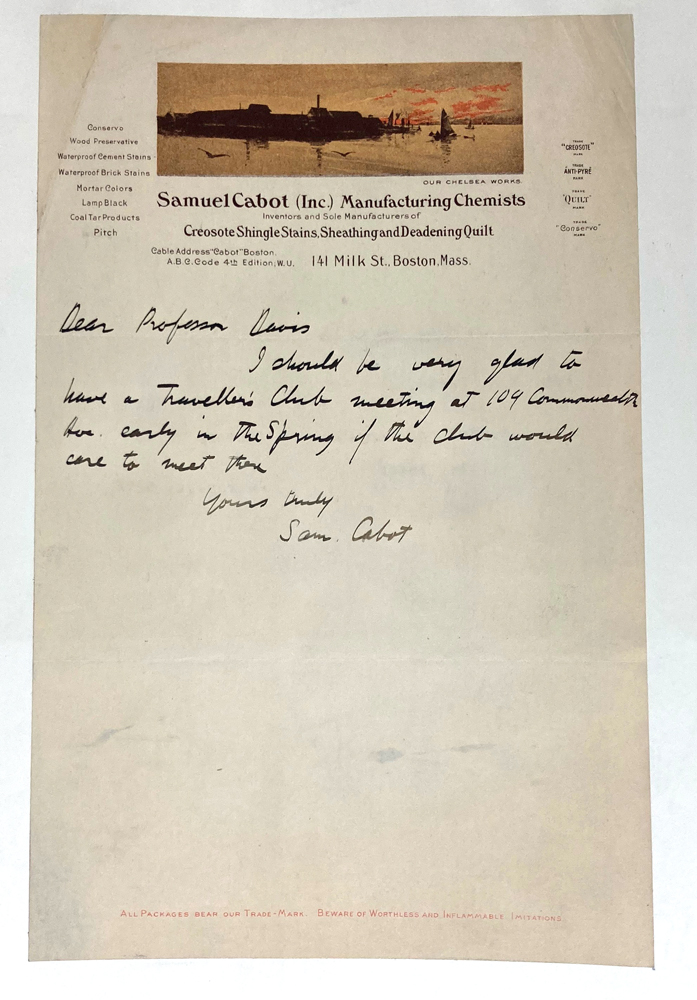 Conservo
Wood Preservative
Waterproof Cement Stains
Waterproof Brick Stains
Mortar Colors
Lamp Black
Coal Tar Products
Pitch
TRADE
"CREOSOTE"
MARK
TRADE
ANTI-PYRÉ
MARK
TRADE
"QUILT"
MARK
TRADE
"Conservo"
MARK
OUR CHELSEA WORKS.
Samuel Cabot (Inc.) Manufacturing Chemists
Inventors and Sole Manufacturers of
Creosote Shingle Stains, Sheathing and Deadening Quilt
Cable Address "Cabot" Boston.
A.B.C. Code 4th Edition; W.U.
141 Milk St., Boston, Mass.
Dear Professor Davis
I should be very glad to
have a Traveller's Club meeting at 109 Commonwealth
Ave. early in the Spring if the club would
care to meet there
Yours truly
Sam. Cabot
ALL PACKAGES BEAR OUR TRADE-MARK. BEWARE OF WORTHLESS AND INFLAMMABLE IMITATIONS.